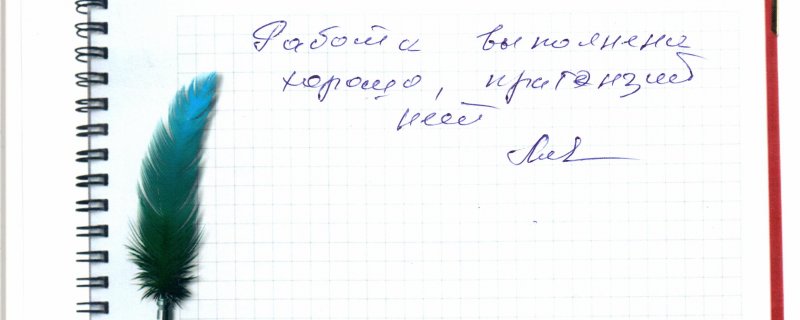 Работа выполнена
хорошо, притэнзий
нет